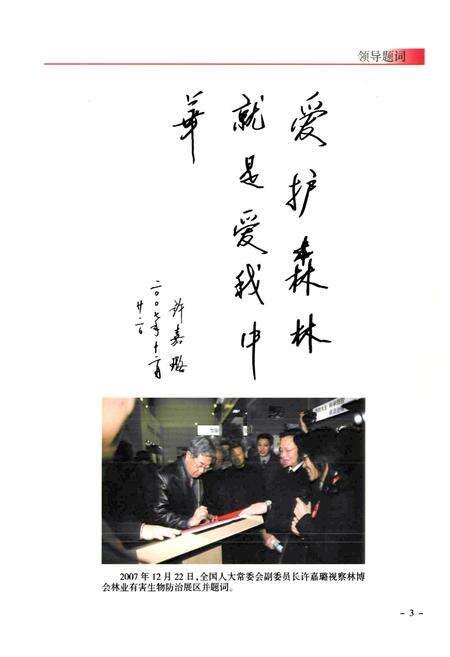 领导题词
爱护森林
就是爱我中
华
许嘉璐
二〇〇七年十二月
廿二日
2007 年 12 月 22 日,全国人大常委会副委员长许嘉璐视察林博
会林业有害生物防治展区并题词。
- 3 -